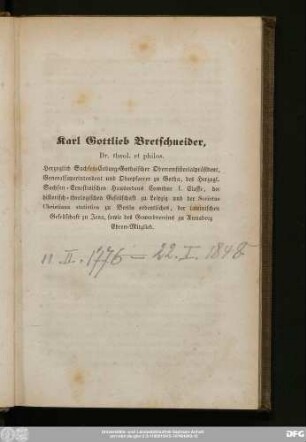 Karl Gottlieb Bretschneider,
Dr. theol. et philos.
Herzoglich Sachsen-Coburg-Gothaischer Oberconsistorialpräsident,
Generalsuperintendent und Oberpfarrer zu Gotha, des Herzogl.
Sachsen-Ernestinischen Hausordens Comthur I. Classe, der
historisch-theologischen Gesellschaft zu Leipzig und der Societas
Christiana zu Berlin ordentliches, der lateinischen
Gesellschaft zu Jena, sowie des Gewerbvereins zu Annaberg
Ehren-Mitglied.
11. II. 1776 – 22. I. 1848